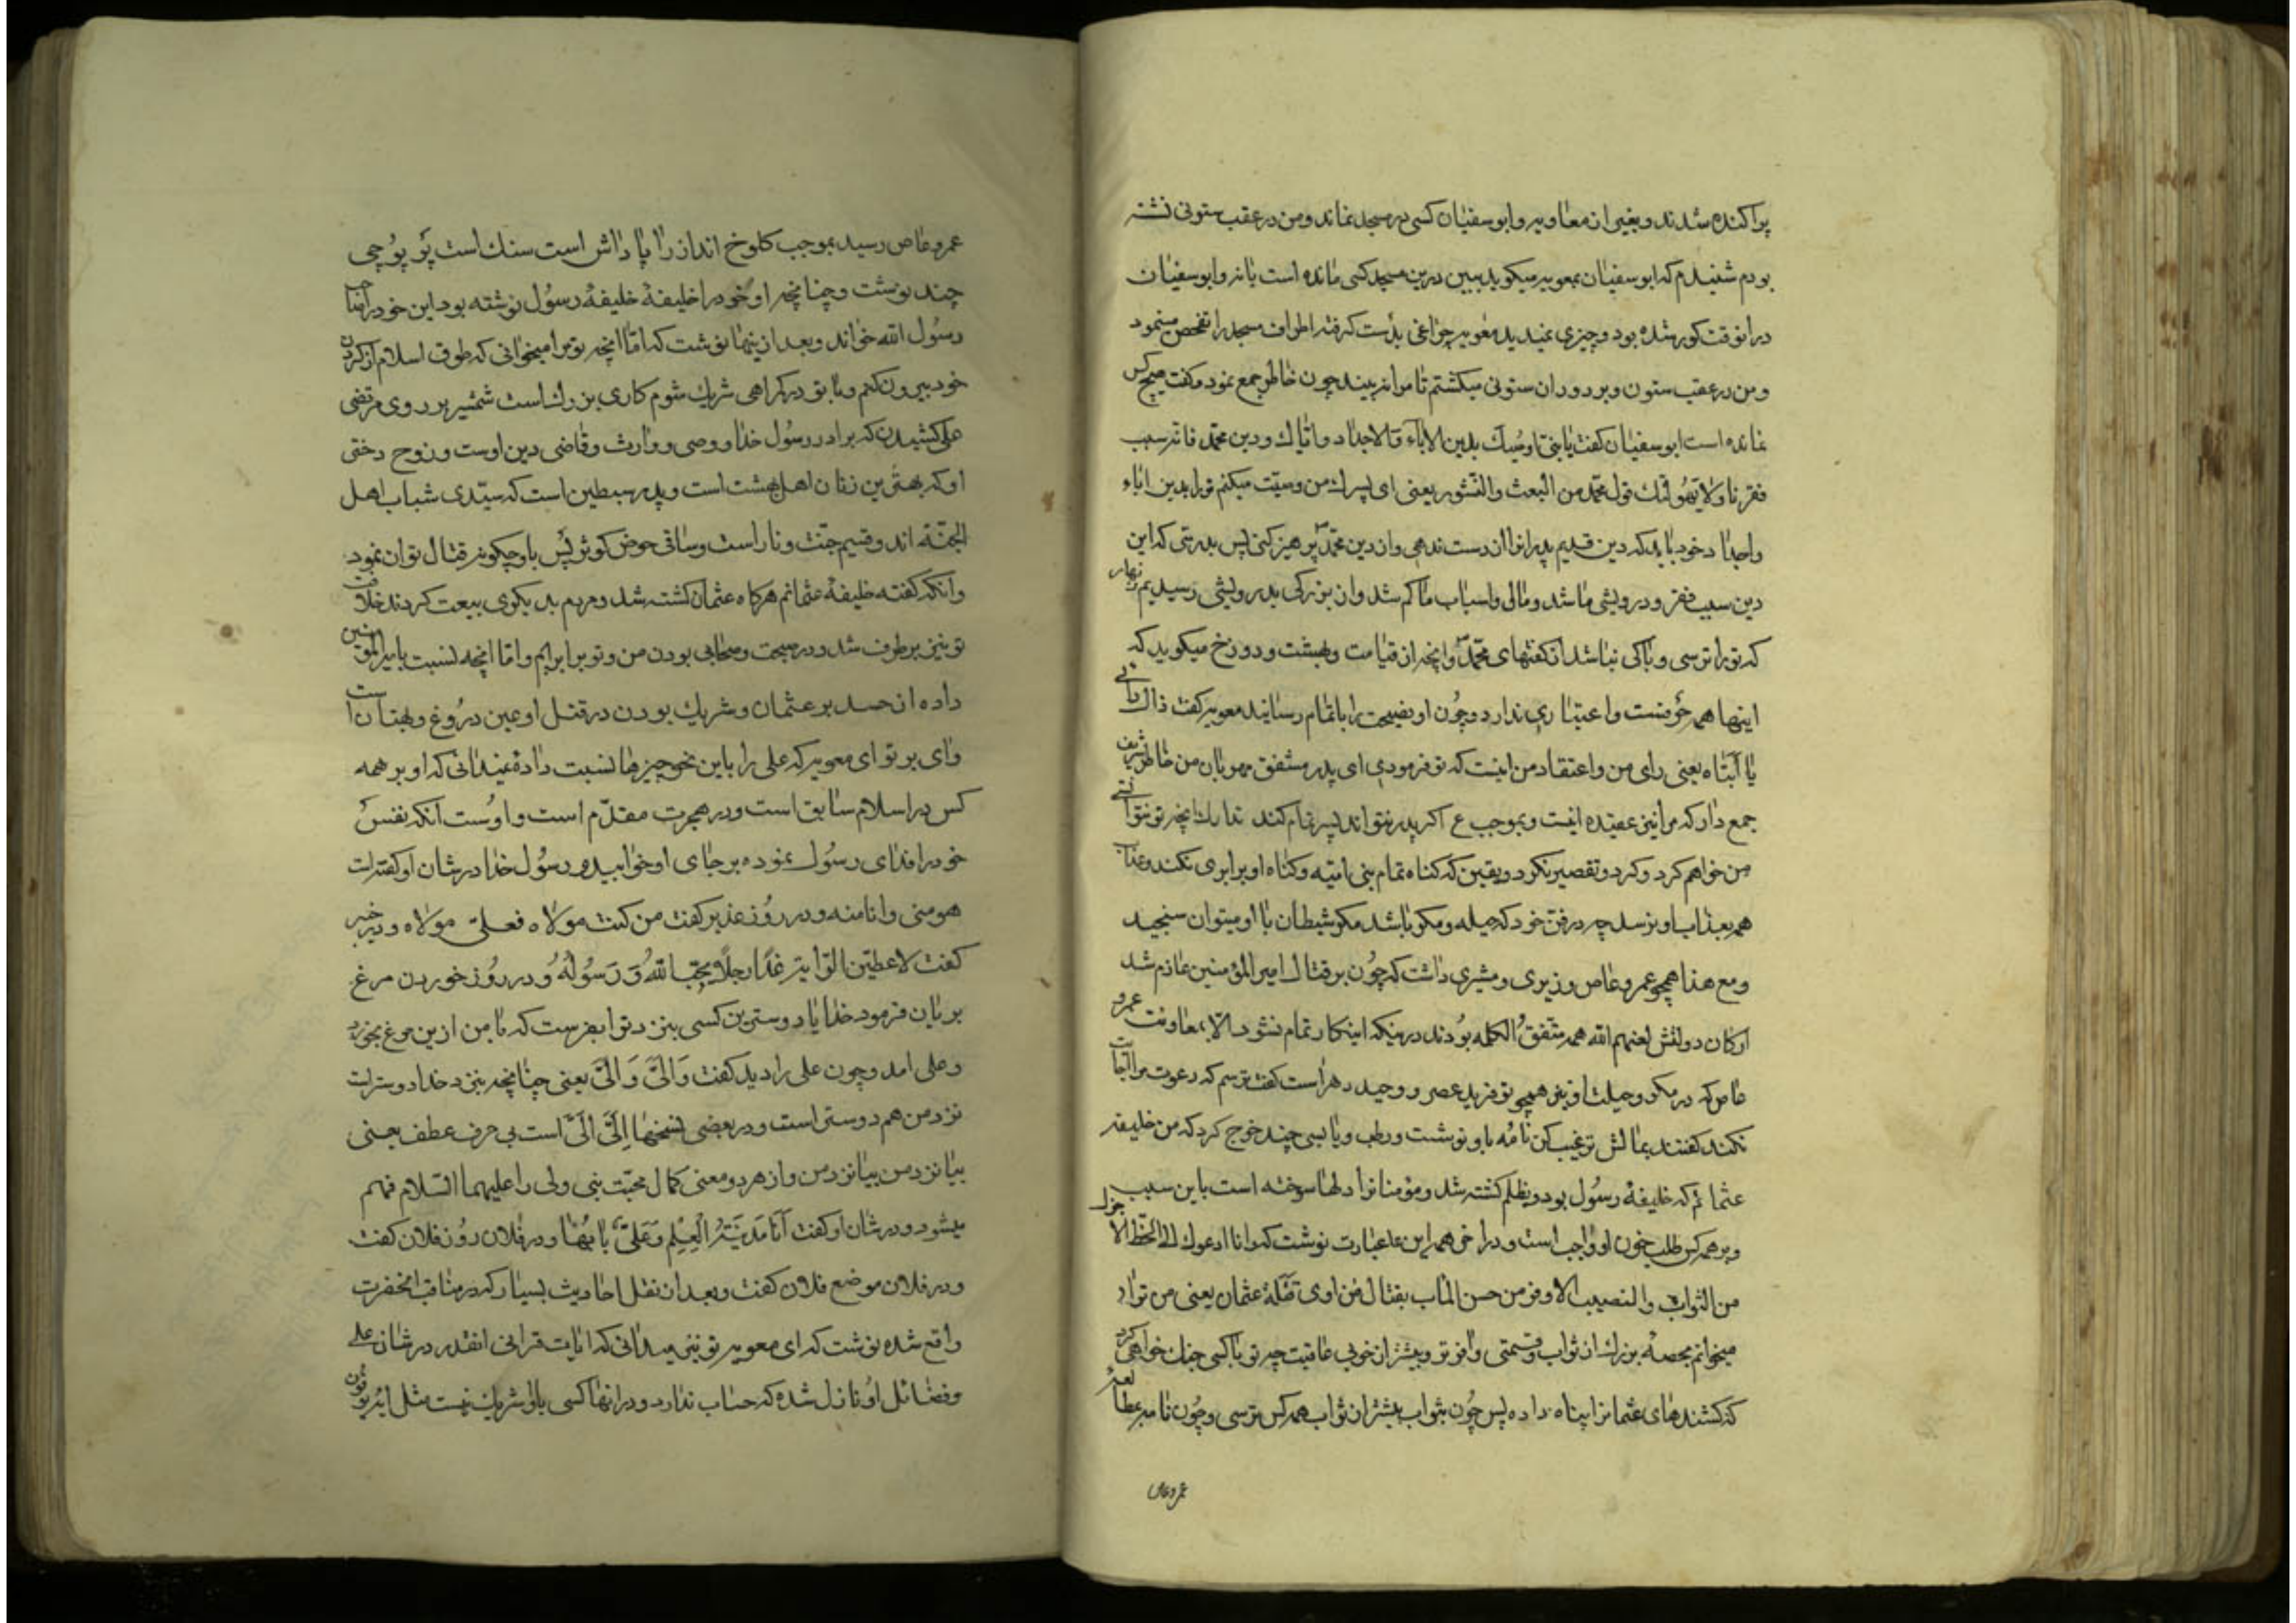 پراکنده شدند و بغیر از معاویه و ابوسفیان کسی در مسجد نماند و من در عقب ستونی نشسته
بودم شنیدم که ابوسفیان بمعویه میکوید ببین درین مسجد کسی مانده است یا نه و ابوسفیان
در انوقت کور شده بود و چیزی نمیدید معویه چراغی بدست کرفته اطراف مسجد را تفحص مینمود
و من در عقب ستون و بر دوران ستونی میکشتم تا مرا نه بیند چون خاطر جمع نمود و کفت هیچ کس
نمانده است ابوسفیان کفت یا بنی اوصیک بدین الاباء و الاجداد و ایاک و دین محمد فانه سبب
فقرنا و لا یهولنک قول محمد من البعث و النشور یعنی ای پسرک من وصیت میکنم ترا بدین اباء
و اجداد خود باید که دین قدیم پدرانرا از دست ندهی و از دین محمد پرهیز کنی پس بدرستی که این
دین سبب فقر و درویشی ما شد و مالی و اسباب ما کم شد و از بزرکی بدرویشی رسیدیم و زنهار
که ترا ترسی و باکی نباشد از کفتهای محمد و انچه از قیامت و بهشت و دوزخ میکوید که
اینها همه حرفست و اعتباری ندارد و چون او نصیحت را باتمام رسانید معویه کفت ذاک رائی
یا ابتاه یعنی رای من و اعتقاد من اینست که تو فرمودی ای پدر مشفق مهربان من خاطر شریف
جمع دار که مرا نیز عقیده اینست و بموجب ع اکر پدر نتواند پسر تمام کند تدارک انچه تو نتوانستی
من خواهم کرد و کرد و تقصیر نکرد و یقین که کناه تمام بنی امیه و کناه او برابری نکند و عذاب
همه بعذاب او نرسد چه در فن خود که حیله و مکر باشد مکر شیطان با او میتوان سنجید
و مع هذا همچو عمرو عاص وزیری و مشیری داشت که چون بر قتال امیر المؤمنین عازم شد
ارکان دولتش لعنهم الله همه متفق الکلمه بودند در اینکه اینکار تمام نشود الا بمعاونت عمرو
عاص که در مکر و حیلت او نیز همچو تو فرید عصر و وحید دهر است کفت ترسم که دعوت مرا اجابت
نکند کفتند بمالش ترغیب کن نامه باو نوشت و رطب و یابسی چند خرج کرد که من خلیفه
عثمانم که خلیفه رسول بود و بظلم کشته شد و مؤمنانرا دلها سوخته است باین سبب
و بر همه کس طلب خون او واجب است و در اخر همه این عبارت نوشت که و انا ادعوک الی الحظ الاجزل
من الثواب و النصیب الاوفر من حسن الماب بقتال من اوی قتلة عثمان یعنی من ترا
میخوانم بحصه بزرک از ثواب و قسمتی وافرتر و بیشتر از خوبی عاقبت چه تو با کسی جنک خواهی کرد
که کشندهای عثمانرا پناه داده پس چون بثواب بیشتر از ثواب همه کس ترسی و چون نامه بر عطا
عمرو عاص
عمرو عاص رسید بموجب کلوخ انداز را پاداش است سنک است پر پوچی
چند نوشت و چنانچه او خود را خلیفهٔ خلیفهٔ رسول نوشته بود این خود را صاحب
رسول الله خواند و بعد از اینها نوشت که اما انچه تو مرا میخوانی که طوق اسلام از کردن
خود بیرون کنم و با تو در کمراهی شریک شوم کاری بزرک است شمشیر بر روی مرتضی
علی کشیدن که برادر رسول خدا و وصی و وارث و قاضی دین اوست و زوج دختر
او که بهترین زنان اهل بهشت است و پدر سبطین است که سیدی شباب اهل
الجنة اند و قسیم جنت و نار است و ساقی حوض کوثر پس باو چکونه قتال توان نمود
و انکه کفته خلیفهٔ عثمانم هرکاه عثمان کشته شد و مردم بدیکری بیعت کردند خلافت
تو نیز برطرف شد و در صحبت و صحابی بودن من و تو برابریم و اما انچه نسبت بامیر المؤمنین
داده از حسد بر عثمان و شریک بودن در قتل او عین دروغ و بهتان است
وای بر تو ای معویه که علی را باین نحو چیزها نسبت داده نمیدانی که او بر همه
کس در اسلام سابق است و در هجرت مقدم است و اوست انکه نفس
خود را فدای رسول نموده بر جای او خوابید و رسول خدا در شان او کفته است
هو منی و انا منه و در روز غدیر کفت من کنت مولاه فعلی مولاه و در خیبر
کفت لاعطین الرایة غدا رجلا یحب الله و رسوله و در روز خوردن مرغ
بریان فرمود خدایا دوسترین کسی بنزد تو بفرست که با من از این مرغ بخورد
و علی امد و چون علی را دید کفت وَالیَّ وَالیَّ یعنی چنانچه بنزد خدا دوستر است
نزد من هم دوستر است و در بعضی نسخها اِلیَّ اِلیَّ است بی حرف عطف یعنی
بیا نزد من بیا نزد من و از هر دو معنی کمال محبت نبی ولی را علیهما السلام فهم
میشود و در شان او کفت اَنَا مَدینَةُ الْعِلْمِ وَ عَلیٌّ بابُها و در فلان روز فلان کفت
و در فلان موضع فلان کفت و بعد از نقل احادیث بسیار که در مناقب انحضرت
واقع شده نوشت که ای معویه تو نیز میدانی که ایات قرانی انقدر در شان علی
و فضائل او نازل شده که حساب ندارد و در انها کسی با او شریک نیست مثل ایه یوفون